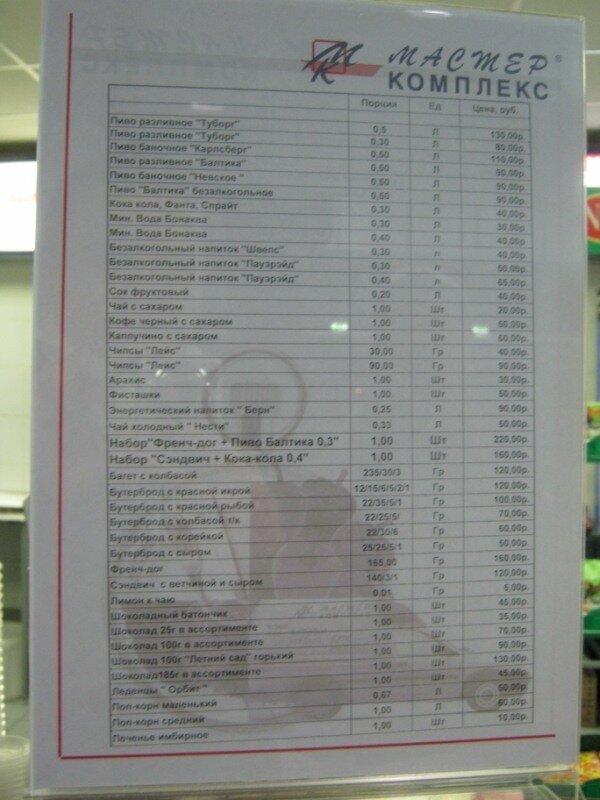 МК МАСТЕР®
КОМПЛЕКС
Порция Ед Цена, руб.
Пиво разливное "Туборг" 0,5 Л 130,00р.
Пиво разливное "Туборг" 0,30 Л 80,00р.
Пиво баночное "Карлсберг" 0,50 Л 110,00р.
Пиво разливное "Балтика" 0,50 Л 90,00р.
Пиво баночное "Невское " 0,50 Л 90,00р.
Пиво "Балтика" безалкогольное 0,50 Л 90,00р.
Кока кола, Фанта, Спрайт 0,30 Л 40,00р.
Мин. Вода Бонаква 0,30 Л 30,00р.
Мин. Вода Бонаква 0,40 Л 40,00р.
Безалкогольный напиток "Швепс" 0,30 Л 40,00р.
Безалкогольный напиток "Пауэрэйд" 0,30 Л 50,00р.
Безалкогольный напиток "Пауэрэйд" 0,40 Л 65,00р.
Сок фруктовый 0,20 Л 40,00р.
Чай с сахаром 1,00 Шт 20,00р.
Кофе черный с сахаром 1,00 Шт 50,00р.
Каппучино с сахаром 1,00 Шт 60,00р.
Чипсы "Лейс" 30,00 Гр 40,00р.
Чипсы "Лейс" 90,00 Гр 90,00р.
Арахис 1,00 Шт 30,00р.
Фисташки 1,00 Шт 50,00р.
Энергетический напиток " Берн" 0,25 Л 90,00р.
Чай холодный " Нести" 0,33 Л 50,00р.
Набор"Френч-дог + Пиво Балтика 0,3" 1,00 Шт 220,00р.
Набор "Сэндвич + Кока-кола 0,4" 1,00 Шт 160,00р.
Багет с колбасой 235/30/3 Гр 120,00р.
Бутерброд с красной икрой 12/15/6/5/2/1 Гр 120,00р.
Бутерброд с красной рыбой 22/35/5/1 Гр 100,00р.
Бутерброд с колбасой т/к 22/25/5/ Гр 70,00р.
Бутерброд с корейкой 22/30/6 Гр 60,00р.
Бутерброд с сыром 25/25/5/1 Гр 50,00р.
Френч-дог 165,00 Гр 160,00р.
Сэндвич с ветчиной и сыром 140/3/1 Гр 120,00р.
Лимон к чаю 0,01 Гр 5,00р.
Шоколадный батончик 1,00 Шт 45,00р.
Шоколад 25г в ассортименте 1,00 Шт 35,00р.
Шоколад 100г в ассортименте 1,00 Шт 70,00р.
Шоколад 100г "Летний сад" горький 1,00 Шт 90,00р.
Шоколад185г в ассортименте 1,00 Шт 130,00р.
Леденцы " Орбит " 1,00 Шт 45,00р.
Поп-корн маленький 0,67 Л 50,00р.
Поп-корн средний 1,00 Л 60,00р.
Печенье имбирное 1,00 Шт 10,00р.